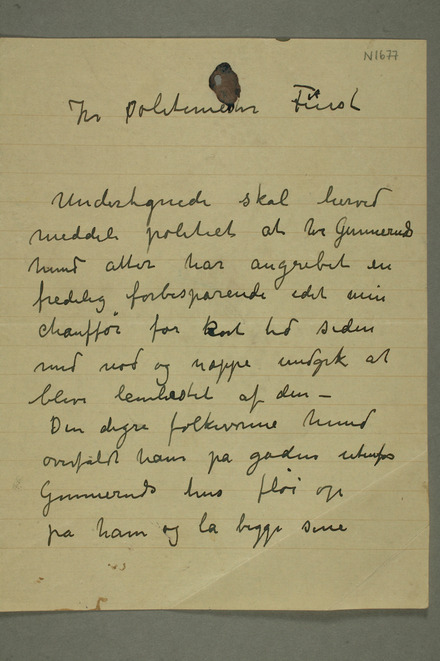 N1677
Hr Politimester Fürst
Undertegnede skal herved
meddele politiet at hr Gunneruds
hund atter har angrebet en
fredelig forbispaserende idet min
chauffør for kort tid siden
med nød og neppe undgik at
blive lemlæstet af den –
Den digre folkevonne hund
overfaldt ham på gaden utenfor
Gunneruds hus fløi op
på ham og la begge sine